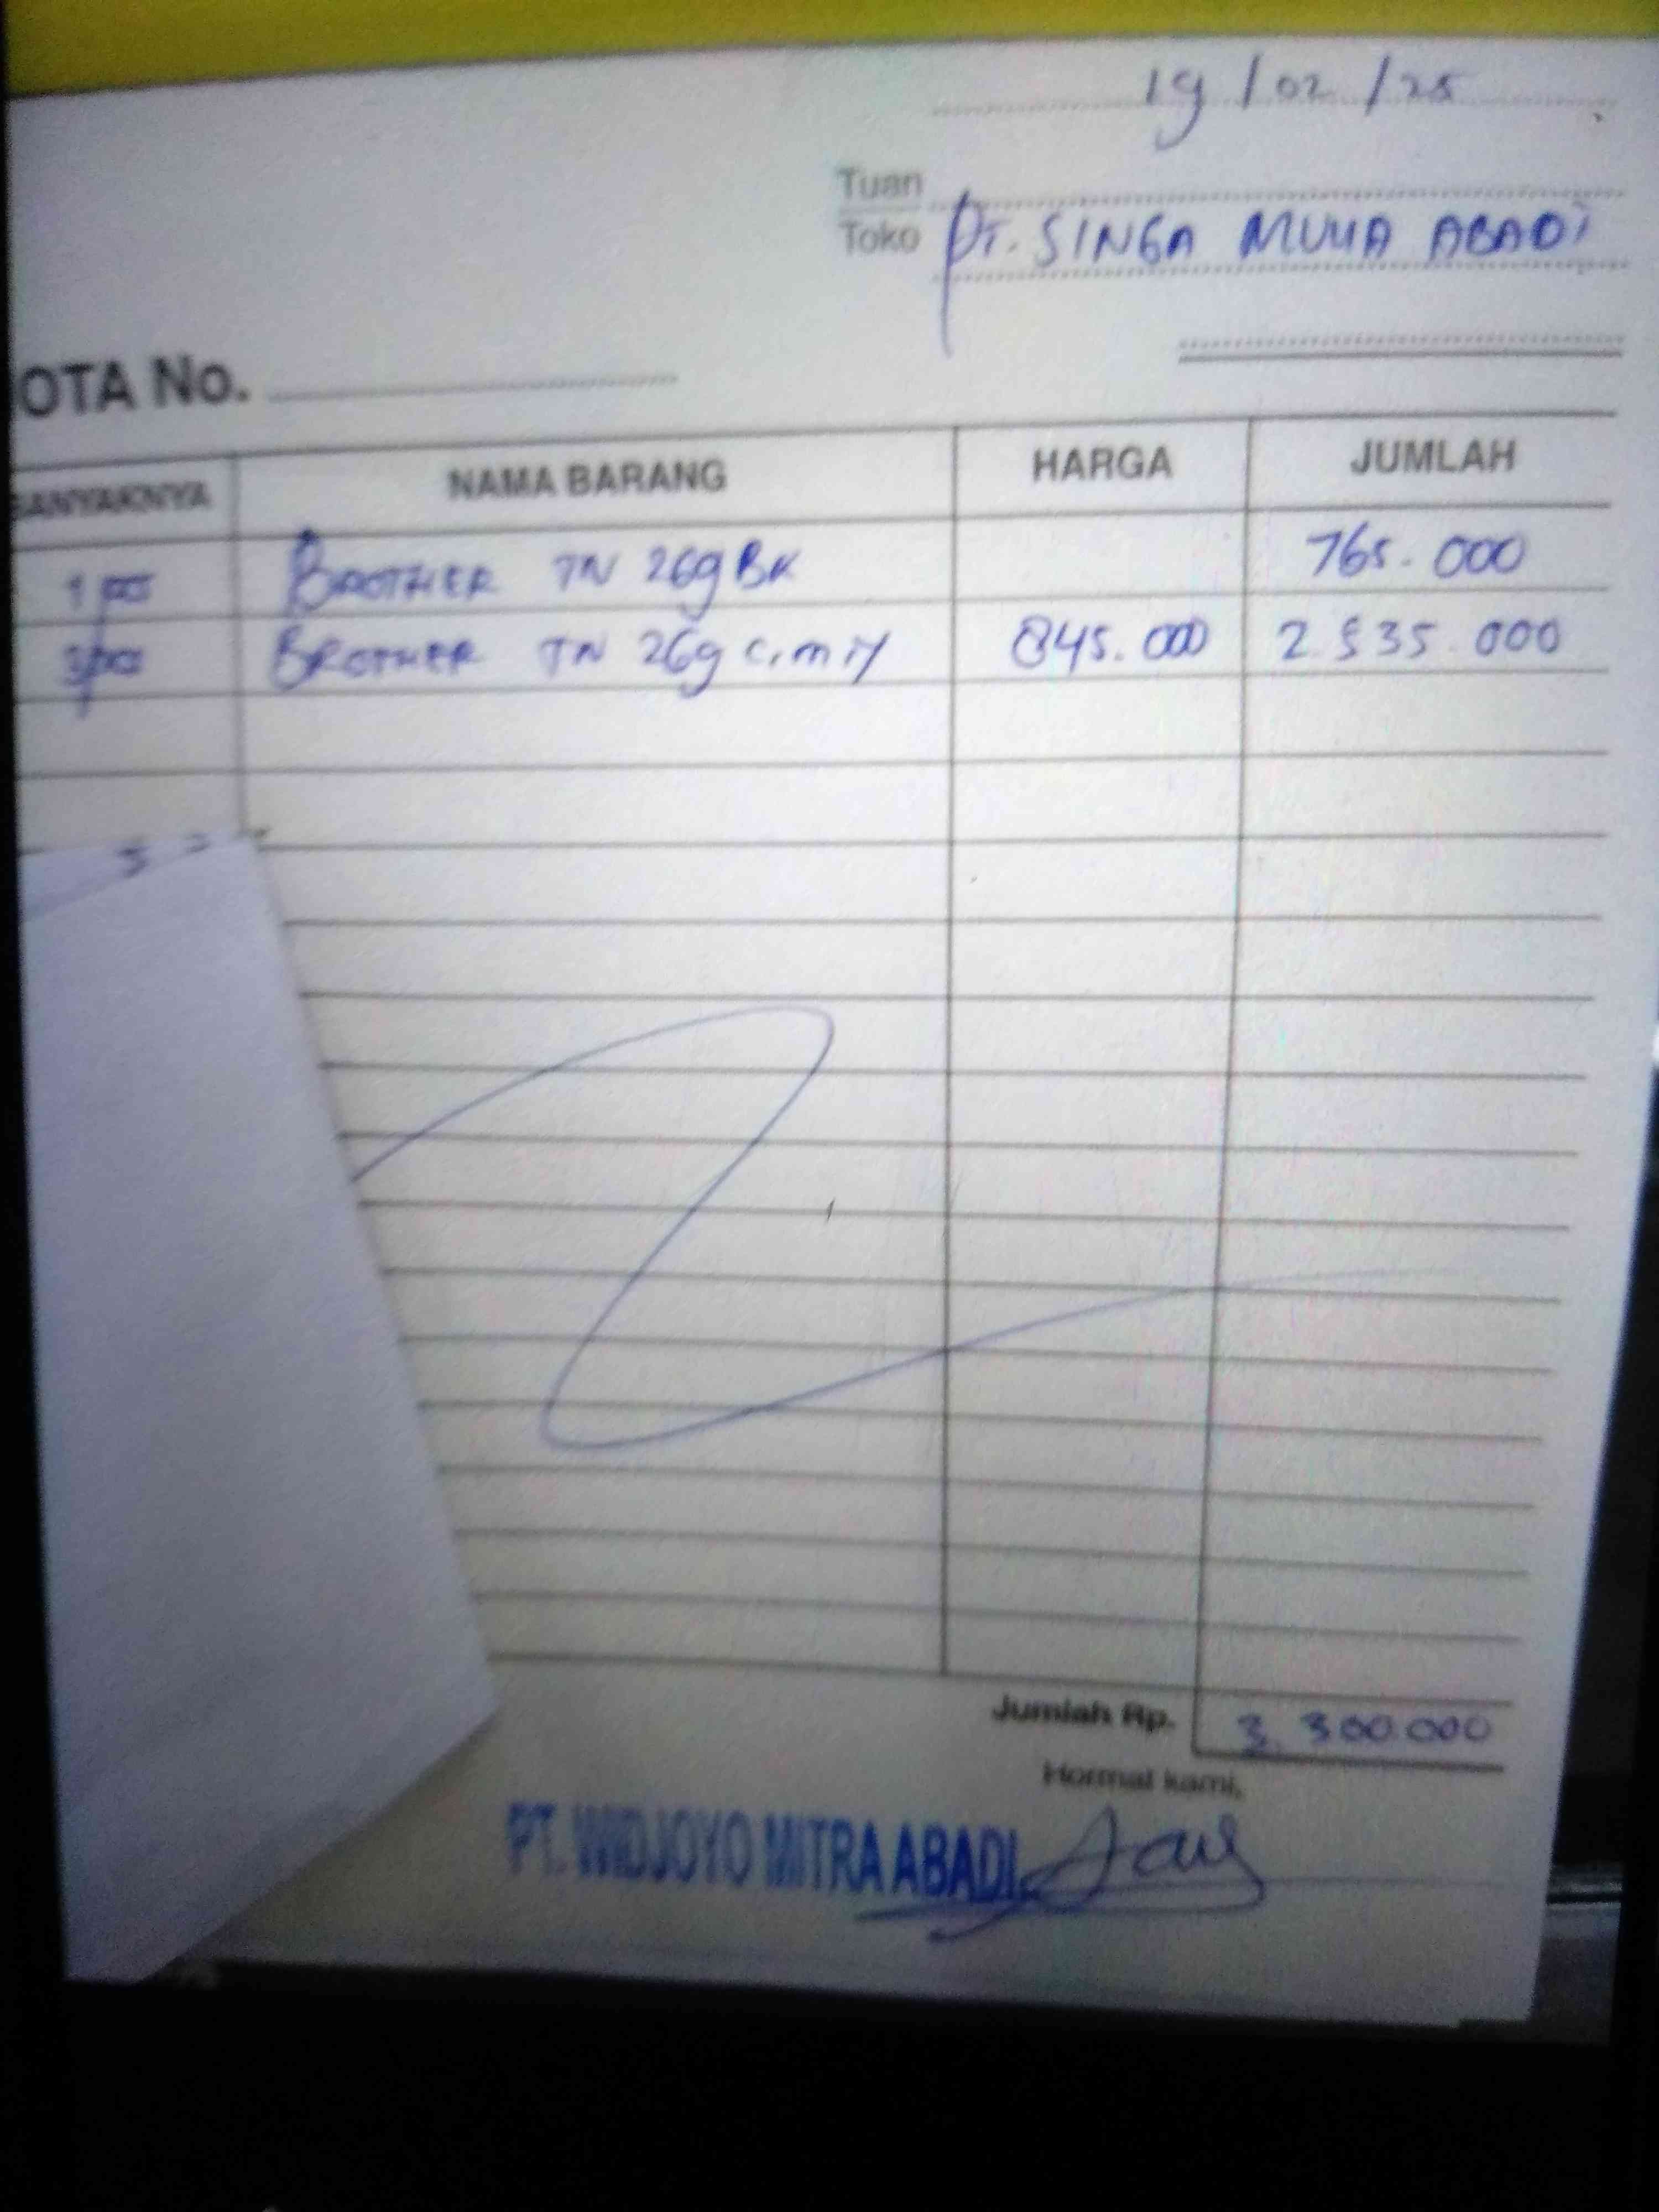 19/02/25
Tuan
Toko PT. SINGA MULIA ABADI
OTA No.
BANYAKNYA NAMA BARANG HARGA JUMLAH
1 pcs BROTHER TN 269 BK 765.000
3 pcs BROTHER TN 269 C,M,Y 845.000 2.535.000
Jumlah Rp. 3.300.000
Hormat kami,
PT. WIDJOYO MITRA ABADI